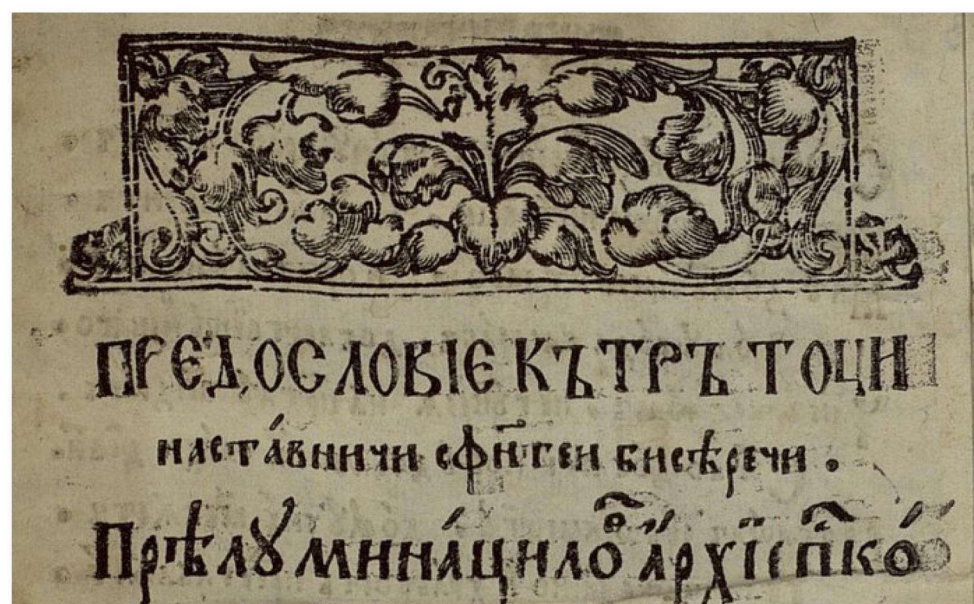 ПРЕДОСЛОВІЕ КЪТРЪ ТОЦИ
наста́вничи сфи҃нтеи бисѣречи .
Прѣлꙋмина́цило҆р а҆рхїепⷭ҇ко́